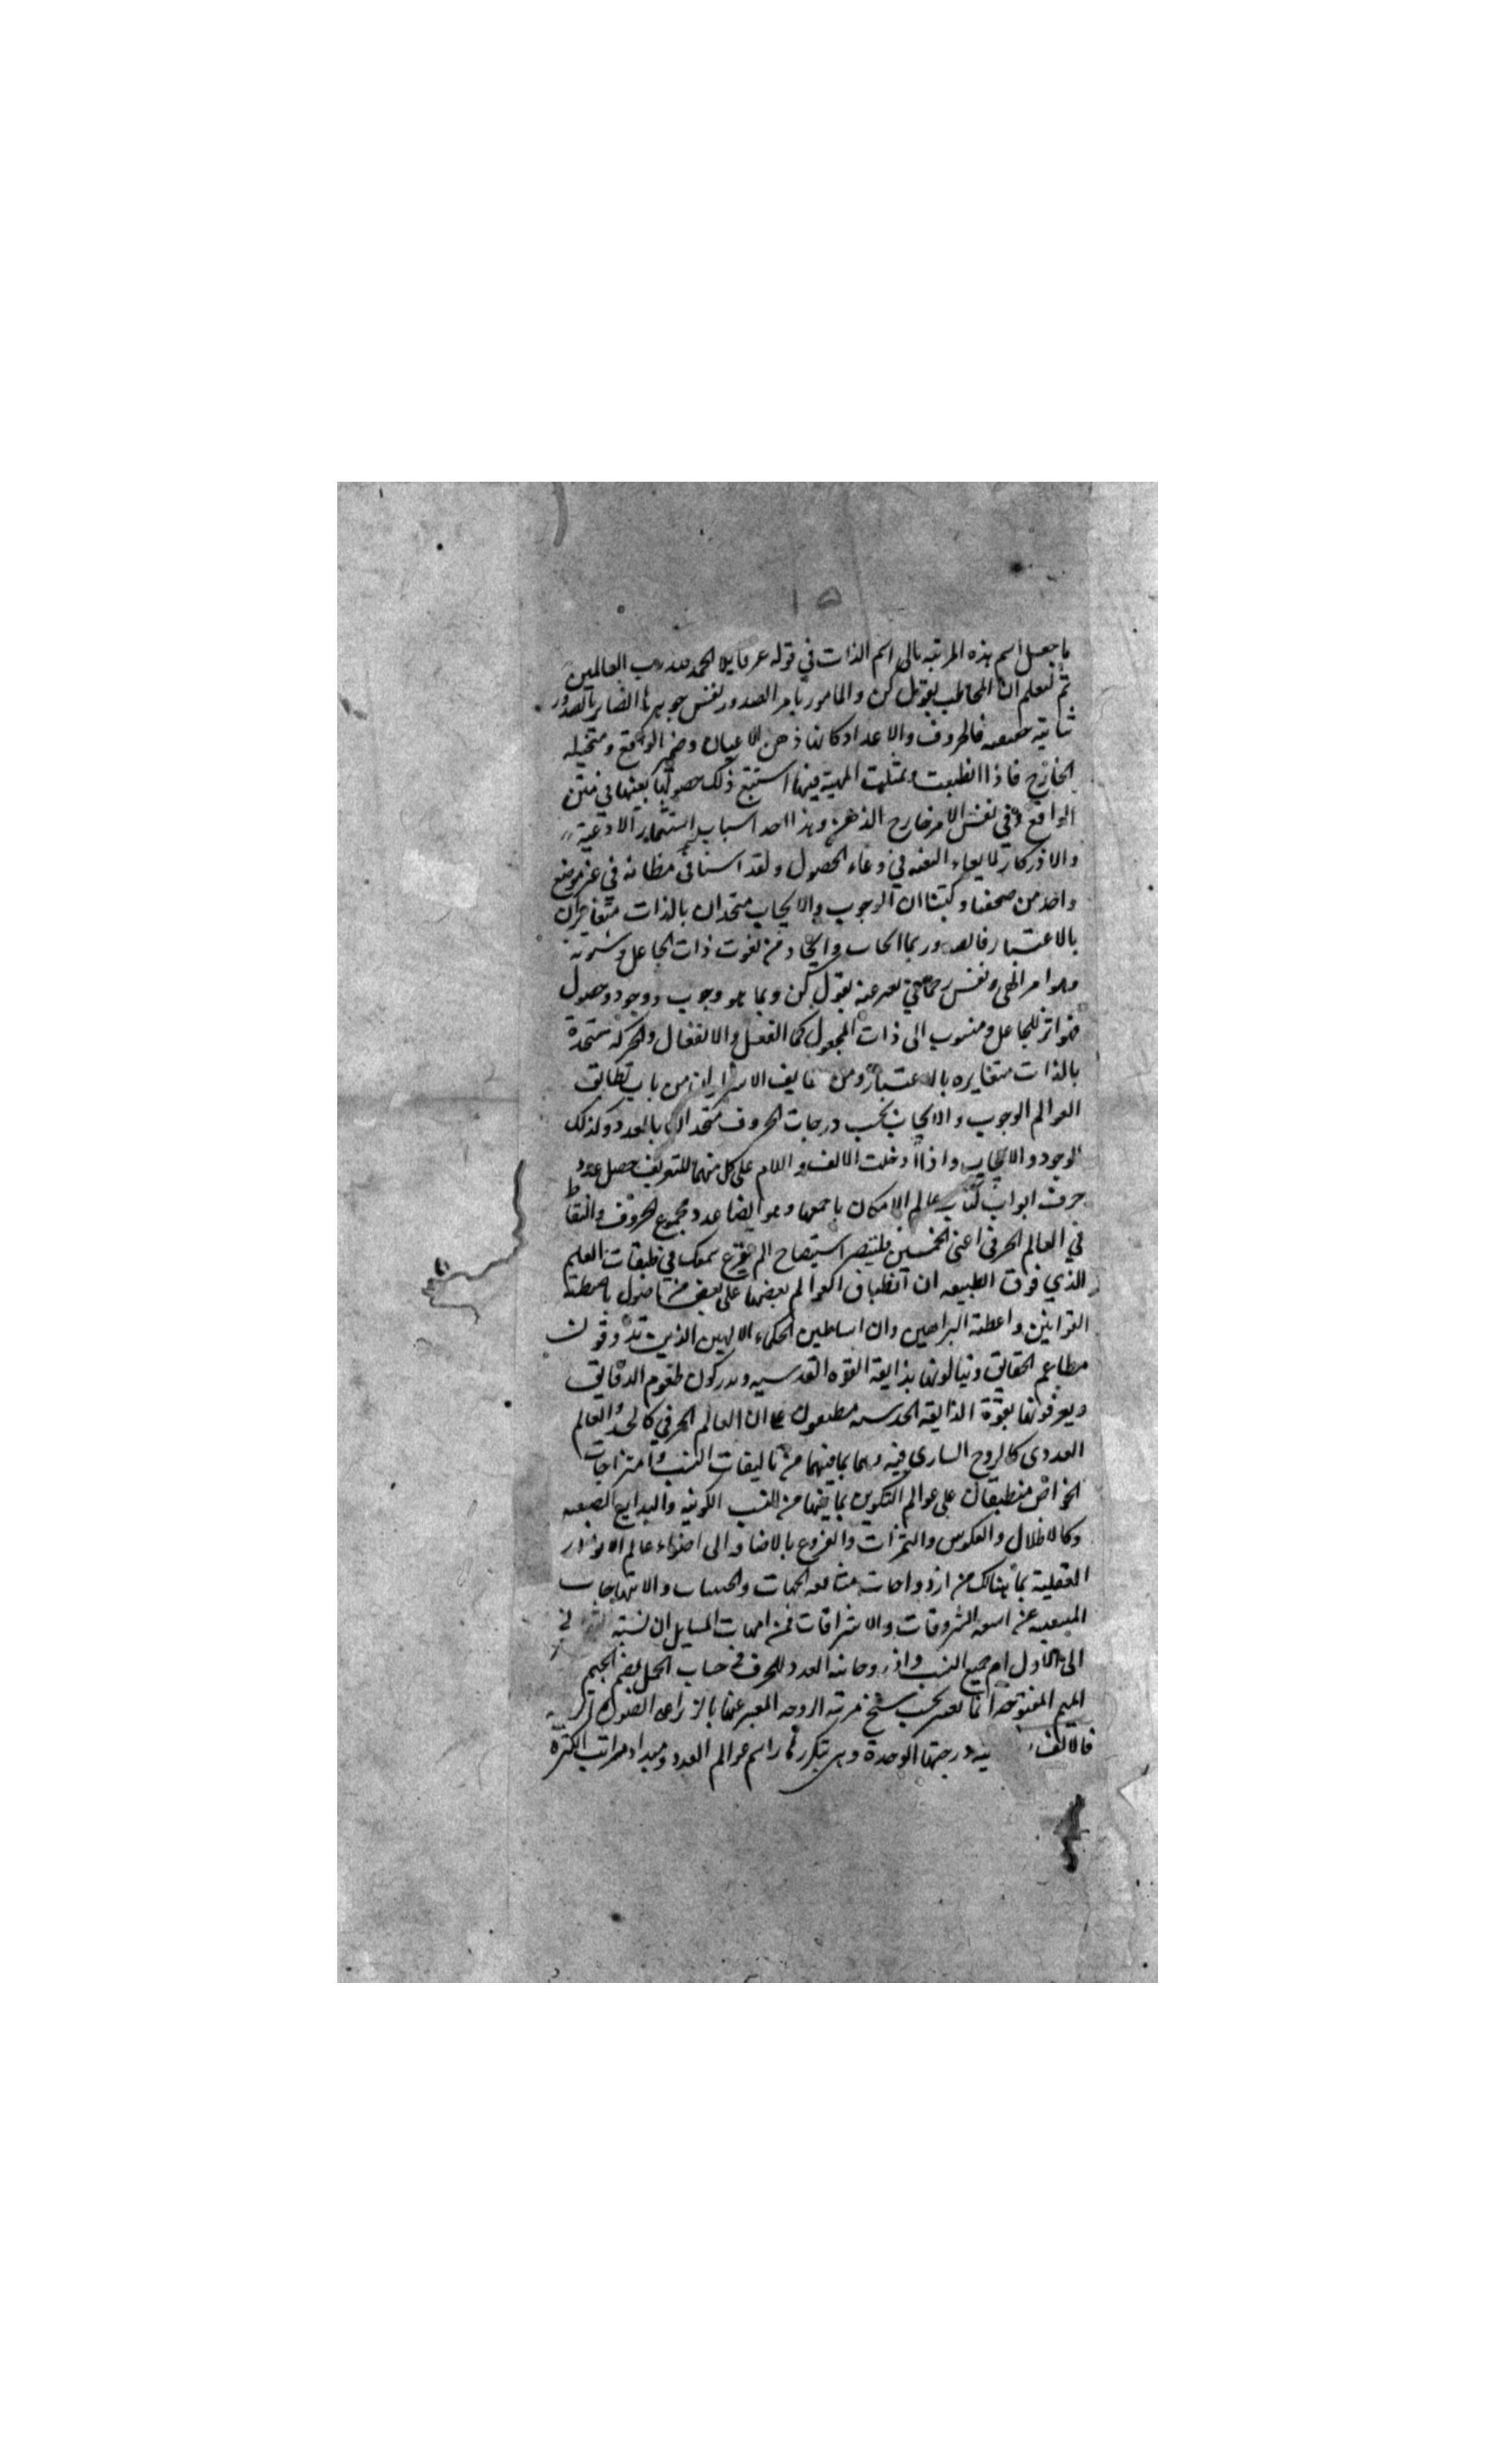 ١٥
ما جعل اسم هذه المرتبه تالى اسم الذات في قوله عز قايلا الحمد لله رب العالمين
ثم ليعلم ان المخاطب بقول كن والمامور بامر الصدور نفس جوهر ها الصاير بالصدور
فالحروف والاعداد كانها ذهن الاعيان وضمير الواقع ومتخيله
الخارج فاذا انطبعت وتمثلت المهية فيها استتبع ذلك حصولها بعينها في متن
الواقع وفي نفس الامر خارج الذهن وهذا احد اسباب استثمار الادعية
والاذكار لما يعاء البغيه في وعاء الحصول ولقد اسمعناك في مظانه في غير موضع
واحد من صحفنا وكتبنا ان الوجوب والايجاب متحدان بالذات متغايران
بالاعتبار فالصدور بما ايجاب وايجاد من نعوت ذات الجاعل وشئونه
وهو امر الهى ونفس رحماني يعبر عنه بقول كن وبما هو وجوب ووجود وحصول
فهو اثر للجاعل ومنسوب الى ذات المجعول كما الفعل والانفعال والحركة متحدة
بالذات متغايره بالاعتبار ومن الاسرار ان من باب تطابق
العوالم الوجوب والايجاب بحسب درجات الحروف متحدان بالعدد وكذلك
الوجود والايجاد واذا ادخلت الالف واللام على كل منهما للتعريف حصل عدد
حروف ابواب كتاب عالم الامكان باجمعها وهو ايضا عدد مجموع الحروف والنقاط
في العالم الحرفي اعني الخمسين استيضاح الم يقرع سمعك في طبقات العلم
الذي فوق الطبيعه ان انطباق العوالم بعضها على بعض من اصول
القوانين واعطته البراهين وان اساطين الحكماء الالهين الذين يذوقون
مطاعم الحقايق وينالونها بذايقة القوه القدسيه ويدركون طعوم الدقايق
ويعرفونها بقوة الذايقه الحدسيه مطبقون على ان العالم الحرفي كالجسد والعالم
العددى كالروح الساري فيه وهما بما فيهما من تاليفات النسب وامتزاجات
الخواص منطبقان على عوالم التكوين بما فيها من النسب الكونيه والبدايع الصنعيه
وكالاظلال والعكوس والثمرات والفروع بالاضافه الى اضواء عالم الانوار
العقلية بما هنالك من ازدواجات الجهات والحيثيات والابتهاجات
المنبعثه عن اشعه الشروقات والاشراقات فمن امهات المسايل ان نسبة الثوانى
الى الاول ام جميع النسب واذ روحانيه العدد للحرف في حساب الجمل بضم الجيم
الميم المفتوحه انما تعتبر بحسب
فالالف درجتها الوحدة وهى بتكررها راسم عوالم العدد ومبدا مراتب الكثرة